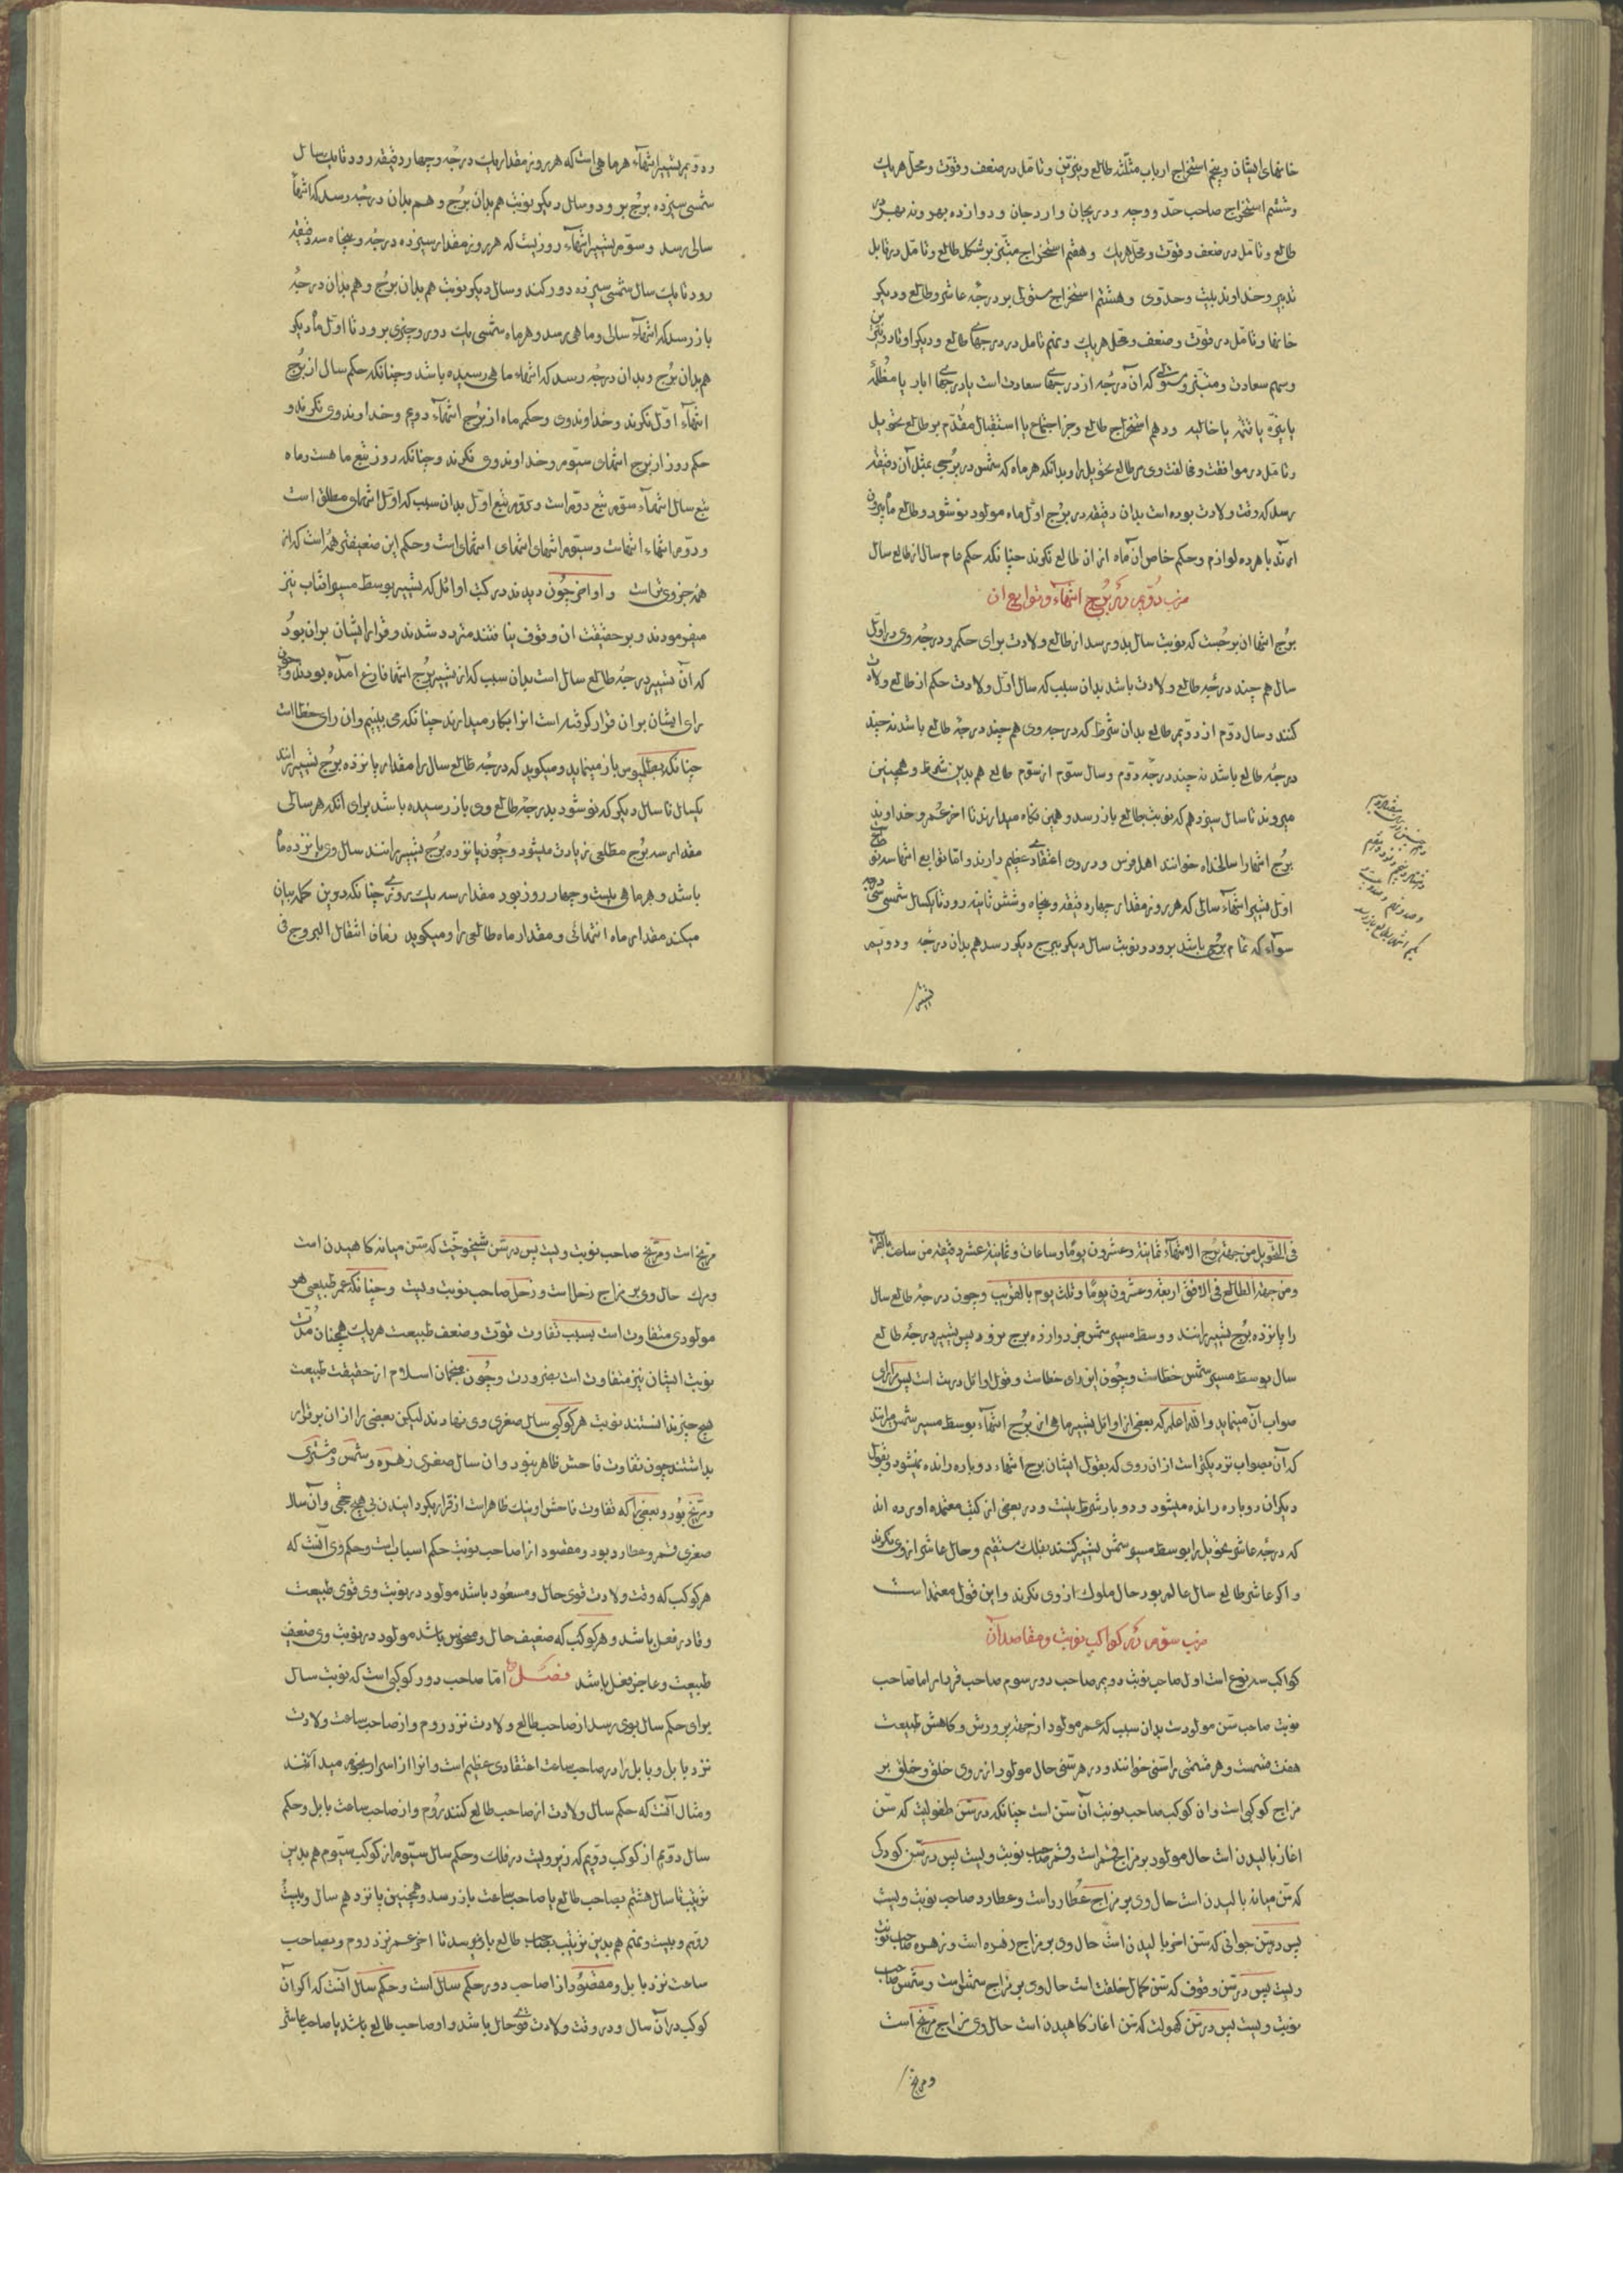 خانهای ایشان و پنجم استخراج ارباب مثلّثه طالع و نیّرین و تامّل در ضعف و قوّت و محلّ هریک
و ششم استخراج صاحب حدّ و وجه و دریجان و اردجان و دوازده بهر و نه بهر در
طالع و تامّل در ضعف و قوّت و محلّ هریک و هفتم استخراج مبتزّ بر شکل طالع و تامّل در قابل
تدبیر و خداوند بیت و حد وی و هشتم استخراج مستولی بر درجه عاشر و طالع و دیگر
خانها و تامّل در قوّت و ضعف و محلّ هریک و نهم تامل در درجهای طالع و دیگر اوتاد و نیّرین
و سهم سعادت و مبتزّ و مستولی که آن درجه از درجهای سعادت است یا درجهای ابار یا مظلمه
یا نیّره یا قتمه یا خالیه و دهم استخراج طالع و جزء اجتماع یا استقبال مقدّم بر طالع تحویل
و تامّل در موافقت و مخالفت وی مر طالع تحویل را و بدانکه هر ماه که شمس در برجی بمثل آن دقیقه
رسد که وقت ولادت بوده است بدان دقیقه در برج اول ماه مولود نو شود و طالع ماه بیرون
ارند با هر ده لوازم و حکم خاص ان ماه از ان طالع نکوند چنانکه حکم عام سال از طالع سال
ضرب دوّیم در برج انتهاء و توابع ان
برج انتها ان برجست که نوبت سال بدو رسد از طالع ولادت برای حکم و درجه وی در اوّل
سال هم چند درجه طالع ولادت باشد بدان سبب که سال اوّل ولادت حکم از طالع ولادت
کنند و سال دوّم از دوّیم طالع بدان شرط که درجه وی هم چند درجه طالع باشد نه چند
درجه طالع باشد نه چند درجه دوّم و سال سوّم از سوّم طالع هم بدین شرط و همچنین
میروند تا سال سیزدهم که نوبت بطالع باز رسد و همین نکاه میدارند تا اخر عمر و خداوند
برج انتها را سالخداه خوانند اهل فرس و در وی اعتقادی عظیم دارند و امّا توابع انتها سه نوع
اوّل تسییر انتهاء سالی که هر روز مقدار چهار دقیقه و پنجاه و شش ثانیه رود تا یکسال شمسی سی درجه
سواء که تمام برجی باشد برود و نوبت سال دیکر ببرج دیکر رسد هم بدان درجه و دوّیم
تسییر
و دوّیم تسییر انتهاء هر ماهی است که هر روز مقدار یک درجه و چهار دقیقه رود تا یک سال
شمسی سیزده برج برود و سال دیکر نوبت هم بدان برج و هم بدان درجه رسد که انتهاء
سالی رسد و سوّم تسییر انتهاء روزیست که هر روز مقدار سیزده درجه و پنجاه سه دقیقه
رود تا یک سال شمسی سیزده دور کند و سال دیکر نوبت هم بدان برج و هم بدان درجه
باز رسد که انتهاء سالی و ماهی رسد و هر ماه شمسی یک دور و چیزی برود تا اوّل ماه دیکر
هم بدان برج و بدان درجه رسد که انتهاء ماهی رسیده باشد و چنانکه حکم سال از برج
انتهاء اوّل نکرند و خداوند وی و حکم ماه از برج انتهاء دویم و خداوند وی نکرند و
حکم روز از برج انتهای سیّوم و خداوند وی نکرند و چنانکه روز تبع ماهست و ماه
تبع سال انتهاء سوّم تبع دوّم است و دوّم تبع اوّل بدان سبب که اوّل انتهای مطلق است
و دوّم انتهاء انتهاست و سیّوم انتهای انتهای انتهای است و حکم این ضعیفتر همه است که از
همه جزوی تراست و اواخر چون دیدند در کتب اوائل که تسییر بوسط مسیر افتاب نیز
میفرمودند و بر حقیقت ان وقوف نیافتند متردد شدند و قرار ایشان بران بود
که آن تسییر درجه طالع سال است بدان سبب که از تسییر برج انتها فارغ امده بودند و چون
رای ایشان بران قرار کرفته است انرا بکار میدارند چنانکه می بینیم و ان رای خطا است
چنانکه بطلمیوس باز مینماید و میکوید که درجه طالع سال را مقدار پانزده برج تسییر رانند
یکسال تا سال دیکر که نو شود بدرجه طالع وی باز رسیده باشد برای انکه هر سالی
مقدار سه برج مطلعی زیادت میشود و چون پانزده برج تسییر رانند سال وی پانزده ماه
باشد و هر ماهی بیست و چهار روز بود مقدار سه یک روزی چنانکه درین کلمه بیان
میکند مقدار ماه انتهائی و مقدار ماه طالعی را و میکوید زمان انتقال البروج فی
فی التحویل من جهة برج الانتهاء ثمانیة و عشرون یومًا و ساعات و ثمانیة عشر دقیقه من ساعت بالتقریب
و من جهة الطالع فی الافق اربعة و عشرون یومًا و ثلث یوم بالتقریب و چون درجه طالع سال
را پانزده برج تسییر رانند و وسط مسیر شمس جز دوازده برج نرود پس تسییر درجه طالع
سال بوسط مسیر شمس خطاست و چون این رای خطاست و قول اوائل درست است پس
صواب آن مینماید والله اعلم که بعضی از اوائل تسییر ماهی از برج انتهاء بوسط مسیر شمس میرانند
که آن بصواب نزدیکتر است از ان روی که بقول ایشان برج انتهاء دوباره رانده نمیشود و بقول
دیکران دوباره رانده میشود و دوبار شرط نیست و در بعضی از کتب معتمده اورده اند
که درجه عاشر تحویل را بوسط مسیر شمس تسییر کنند بفلک مستقیم و حال عاشر از وی نکرند
و اکر عاشر طالع سال عالم بود حال ملوک از وی نکرند و این قول معتمد است
ضرب سوّم در کواکب نوبت و مقاصد آن
کواکب سه نوع است اول صاحب نوبت دویم صاحب دور سوم صاحب فردار اما صاحب
نوبت صاحب سن مولودست بدان سبب که عمر مولود از جهة پرورش و کاهش طبیعت
هفت قسمت و هر قسمتی را سنّی خوانند و در هر سنّی حال مولود از روی خلق و خلق بر
مزاج کوکبی است و ان کوکب صاحب نوبت آن سنّ است چنانکه در سنّ طفولیت که سن
اغاز بالیدن است حال مولود بر مزاج قمر است و قمر صاحب نوبت ویست پس در سن کودکی
که سن میانه بالیدن است حال وی بر مزاج عطارد است و عطارد صاحب نوبت ویست
پس در سن جوانی که سن اخر بالیدن است حال وی بر مزاج زهره است و زهره صاحب نوبت
ویست پس در سن وقوف که سن کمال خلقت است حال وی بر مزاج شمس است و شمس صاحب
نوبت ویست پس در سن کهولت که سن اغاز کاهیدن است حال وی مزاج مریخ است
و مریخ
مریخ است و مریخ صاحب نوبت ویست پس در سن شیخوخیّت که سن میانه کاهیدن است
و مرک حال وی بر مزاج زحل است و زحل صاحب نوبت ویست و چنانکه عمر طبیعی هر
مولودی متفاوت است بسبب تفاوت قوّت و ضعف طبیعت هر یک همچنان مدّت
نوبت ایشان نیز متفاوت است بضرورت و چون منجمان اسلام از حقیقت طبیعت
هیچ چیز ندانستند نوبت هر کوکبی سال صغری وی نهادند لیکن بعضی را از ان بر قرار
بداشتند چون تفاوت فاحش ظاهر نبود و ان سال صغری زهره و شمس و مشتری
و مریخ بود و بعضی را که تفاوت فاحش اوینک ظاهر است از قرار بکردانیدن بی هیچ حجّتی و آن سال
صغری قمر و عطارد بود و مقصود از صاحب نوبت حکم اسباب است و حکم وی آنست که
هر کوکب که وقت ولادت قوی حال و مسعود باشد مولود در نوبت وی قوی طبیعت
و قادر فعل باشد و هر کوکب که ضعیف حال و منحوس باشد مولود در نوبت وی ضعیف
طبیعت و عاجز فعل باشد فصل امّا صاحب دور کوکبی است که نوبت سال
برای حکم سال بوی رسد از صاحب طالع ولادت نزد روم و از صاحب ساعت ولادت
نزد بابل و بابل را در صاحب ساعت اعتقادی عظیم است و انرا از اسرار نجوم میدانند
و مثال آنست که حکم سال ولادت از صاحب طالع کنند روم و از صاحب ساعت بابل و حکم
سال دوّیم از کوکب دوّیم که زیر ویست در فلک و حکم سال سیّوم از کوکب سیّوم هم بدین
ترتیب تا سال هشتم بصاحب طالع یا صاحب ساعت باز رسد و همچنین پانزدهم سال و بیست
دوّم و بیست و نهم هم بدین ترتیب بصاحب طالع باز رسد تا اخر عمر نزد روم و بصاحب
ساعت نزد بابل و مقصود از صاحب دور حکم سال است و حکم سال انست که اکر آن
کوکب در آن سال و در وقت ولادت قوی حال باشد و او صاحب طالع باشد یا صاحب عاشر